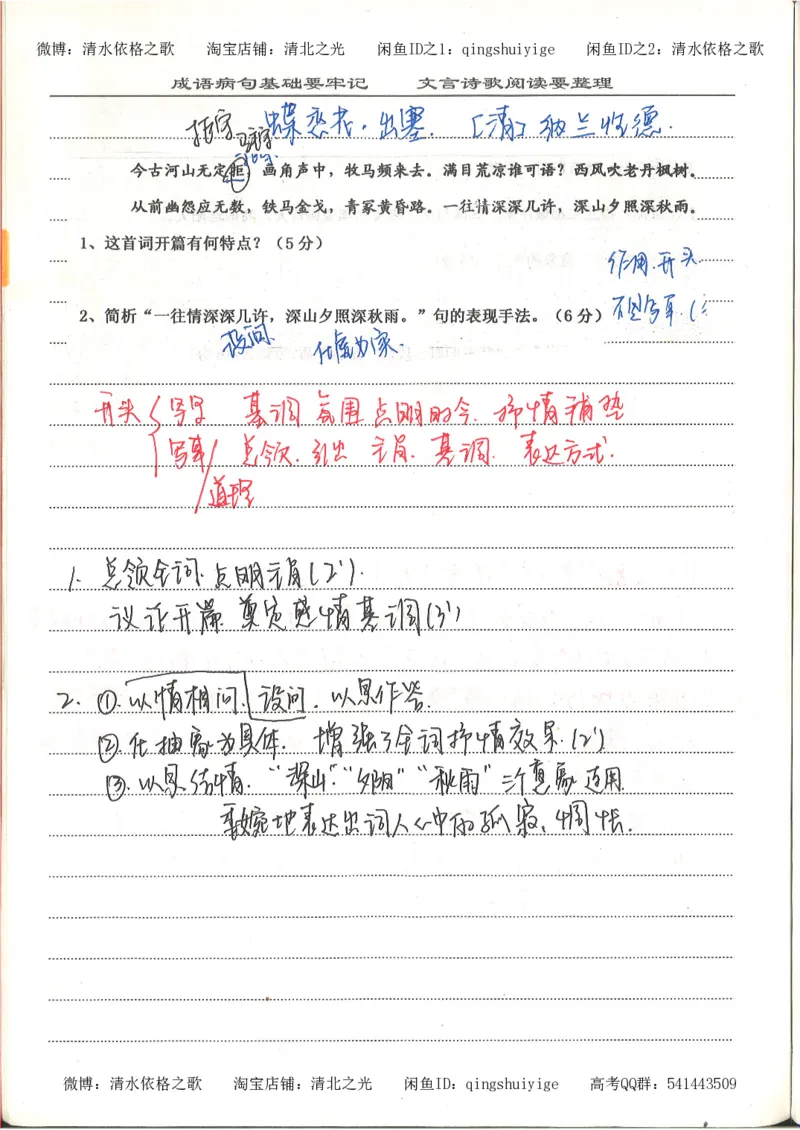 微博：清水依格之歌 淘宝店铺：清北之光 闲鱼ID之1：qingshuiyige 闲鱼ID之2：清水依格之歌
成语病句基础要牢记 文言诗歌阅读要整理
蝶恋花·出塞. [清] 纳兰性德.
今古河山无定距。画角声中，牧马频来去。满目荒凉谁可语？西风吹老丹枫树。
从前幽怨应无数，铁马金戈，青冢黄昏路。一往情深深几许，深山夕照深秋雨。
1、这首词开篇有何特点？（5分）
作用.开头
2、简析“一往情深深几许，深山夕照深秋雨。”句的表现手法。（6分）
设问. 化虚为实.
开头 写景 基调 氛围 点明时令. 抒情铺垫
写事 总领. 引出 主旨. 基调. 表达方式.
道理
1. 总领全词. 点明主旨(2').
议论开篇 奠定感情基调(3')
2. ①.以情相问. 设问. 以景作答.
②.化抽象为具体. 增强了全词抒情效果.(2')
③.以景结情. “深山”“夕阳”“秋雨”三个意象连用
委婉地表达出词人心中的孤寂、惆怅.
微博：清水依格之歌 淘宝店铺：清北之光 闲鱼ID：qingshuiyige 高考QQ群：541443509